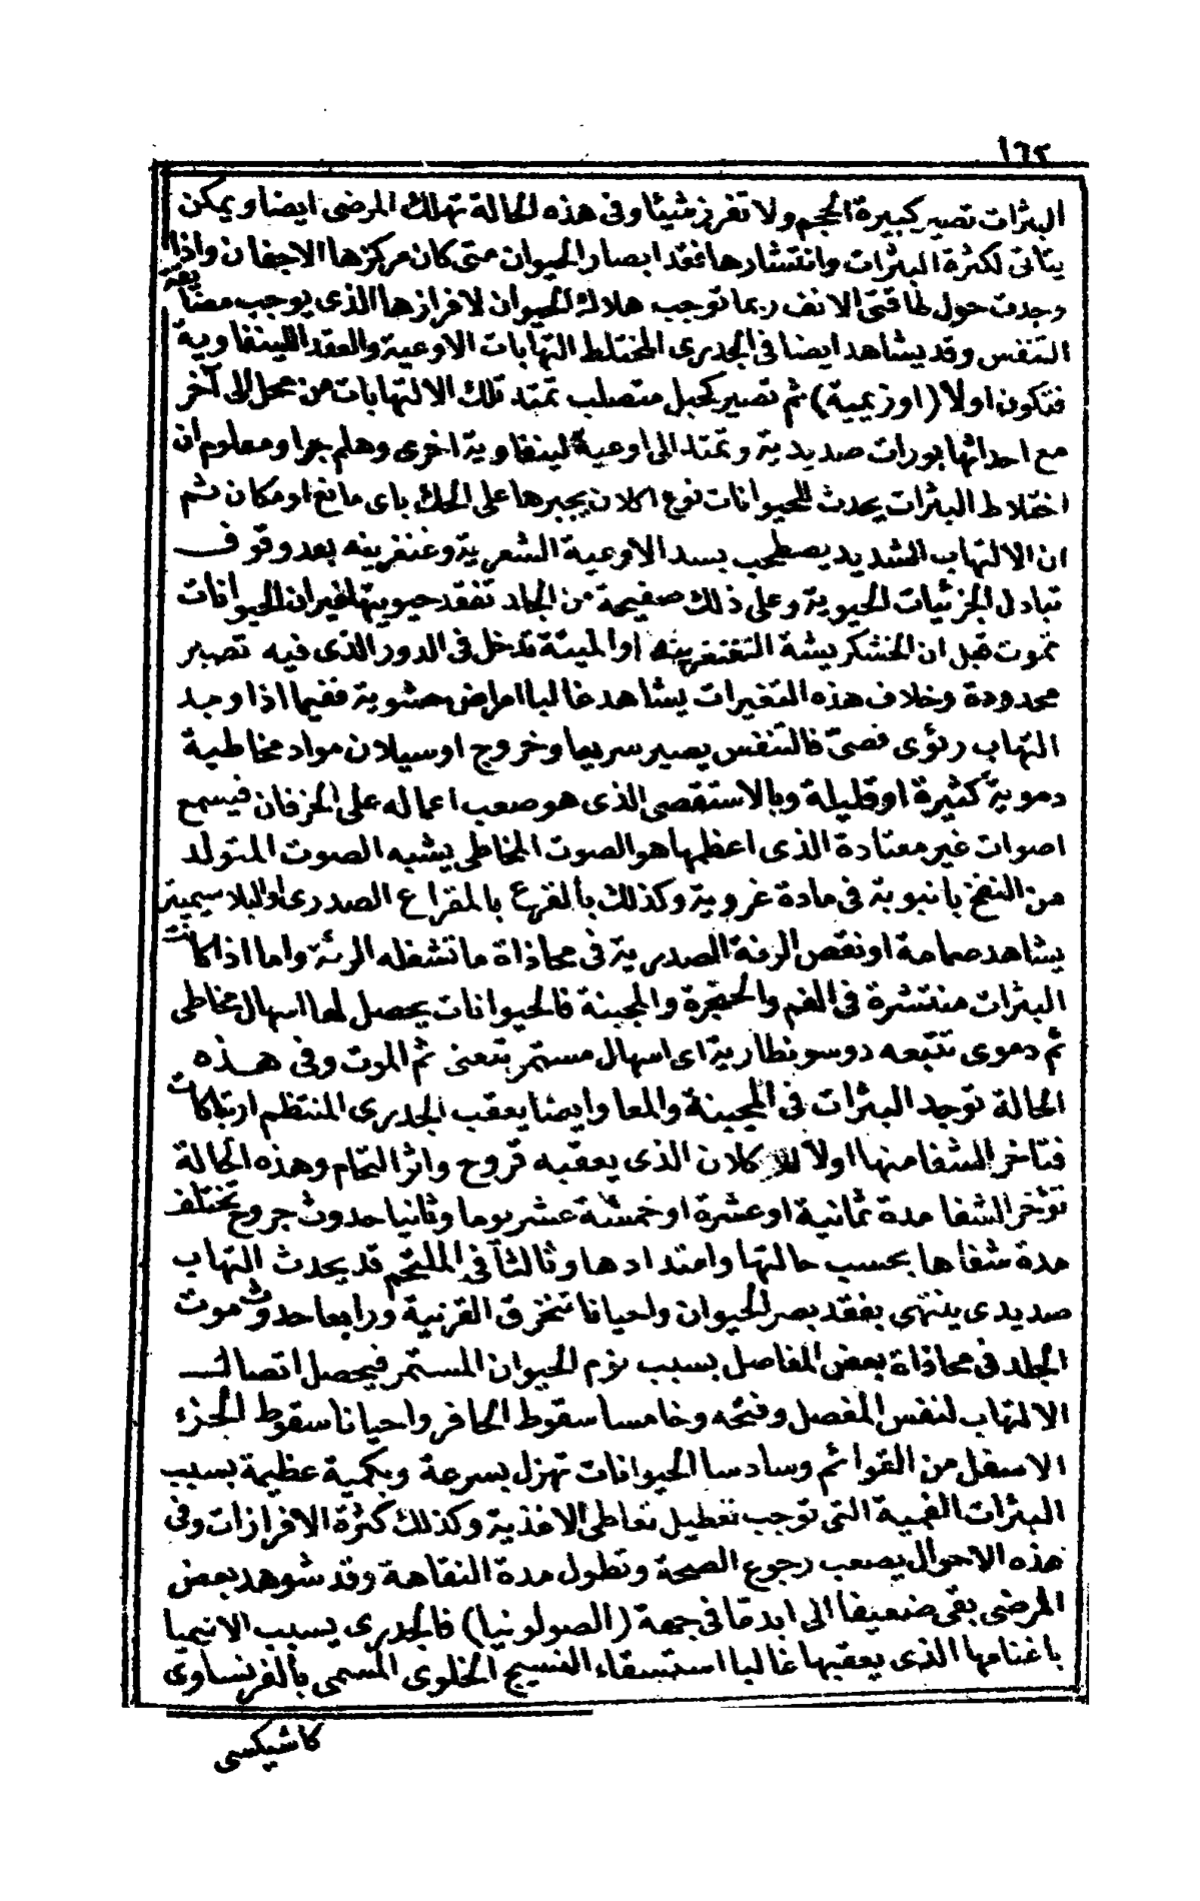 ١٦٢
البثرات تصير كبيرة الحجم ولا تفرز شيئا وفى هذه الحالة تهلك المرضى ايضا ويمكن
يتاتى لكثرة البثرات وانتشارها فقد ابصار الحيوان متى كان مركزها الاجفان واذا
وجدت حول طاقتى الانف ربما توجب هلاك الحيوان لافرازها الذى يوجب مضايقة
التنفس وقد يشاهد ايضا فى الجدرى المختلط التهابات الاوعية والعقد اللينفاوية
فتكون اولا (اوزيمية) ثم تصير كحبل متصلب تمتد تلك الالتهابات من محل الى آخر
مع احداثها بورات صديدية وتمتد الى اوعية لينفاوية اخرى وهلم جرا ومعلوم ان
اختلاط البثرات يحدث للحيوانات نوع اكلان يجبرها على الحك باى مانع او مكان ثم
ان الالتهاب الشديد يصطحب بسد الاوعية الشعرية وغنغرينه بعد وقوف
تبادل الجزئيات الحيوية وعلى ذلك صفيحة من الجلد تفقد حيويتها غير ان الحيوانات
تموت قبل ان الخشكريشة التغنغرينه او الميتة تدخل فى الدور الذى فيه تصير
محدودة وخلاف هذه التغيرات يشاهد غالبا امراض حشوية ففيما اذا وجد
التهاب رئوى فصى فالتنفس يصير سريعا وخروج او سيلان مواد مخاطية
دموية كثيرة او قليلة وبالاستقصى الذى هو صعب اعماله على الخرفان فيسمع
اصوات غير معتادة الذى اعظمها هو الصوت المخاطى يشبه الصوت المتولد
من النفخ بانبوبة فى مادة غروية وكذلك بالقرع بالمقراع الصدرى او البلاسيميتر
يشاهد صمامة او نقص الرنة الصدرية فى محاذاة ما تشغله الرئة واما اذا كانت
البثرات منتشرة فى الفم والحنجرة والمجبنة فالحيوانات يحصل لها اسهال مخاطى
ثم دموى تتبعه دوسونطارية اى اسهال مستمر بتعنى ثم الموت وفى هذه
الحالة توجد البثرات فى المجبنة والمعا وايضا يعقب الجدرى المنتظم ارتباكات
فتاخر الشفا منها اولا للاكلان الذى يعقبه قروح واثر التحام وهذه الحالة
تؤخر الشفا مدة ثمانية او عشرة او خمسة عشر يوما وثانيا حدوث جروح تختلف
مدة شفاها بحسب حالتها وامتدادها وثالثا فى الملتحم قد يحدث التهاب
صديدى ينتهى بفقد بصر الحيوان واحيانا تنخرق القرنية ورابعا حدوث موت
الجلد فى محاذاة بعض المفاصل بسبب نوم الحيوان المستمر فيحصل اتصال
الالتهاب لنفس المفصل وفتحه وخامسا سقوط الحافر واحيانا سقوط الجزء
الاسفل من القوائم وسادسا الحيوانات تهزل بسرعة وبكمية عظيمة بسبب
البثرات الفمية التى توجب تعطيل تعاطى الاغذية وكذلك كثرة الافرازات وفى
هذه الاحوال يصعب رجوع الصحة وتطول مدة النقاهة وقد شوهد بعض
المرضى بقى ضعيفا الى ابد ما فى جهة (الصولونيا) فالجدرى يسبب الانيميا
باغنامها الذى يعقبها غالبا استسقاء النسيج الخلوى المسمى بالفرنساوى
كاشيكسى